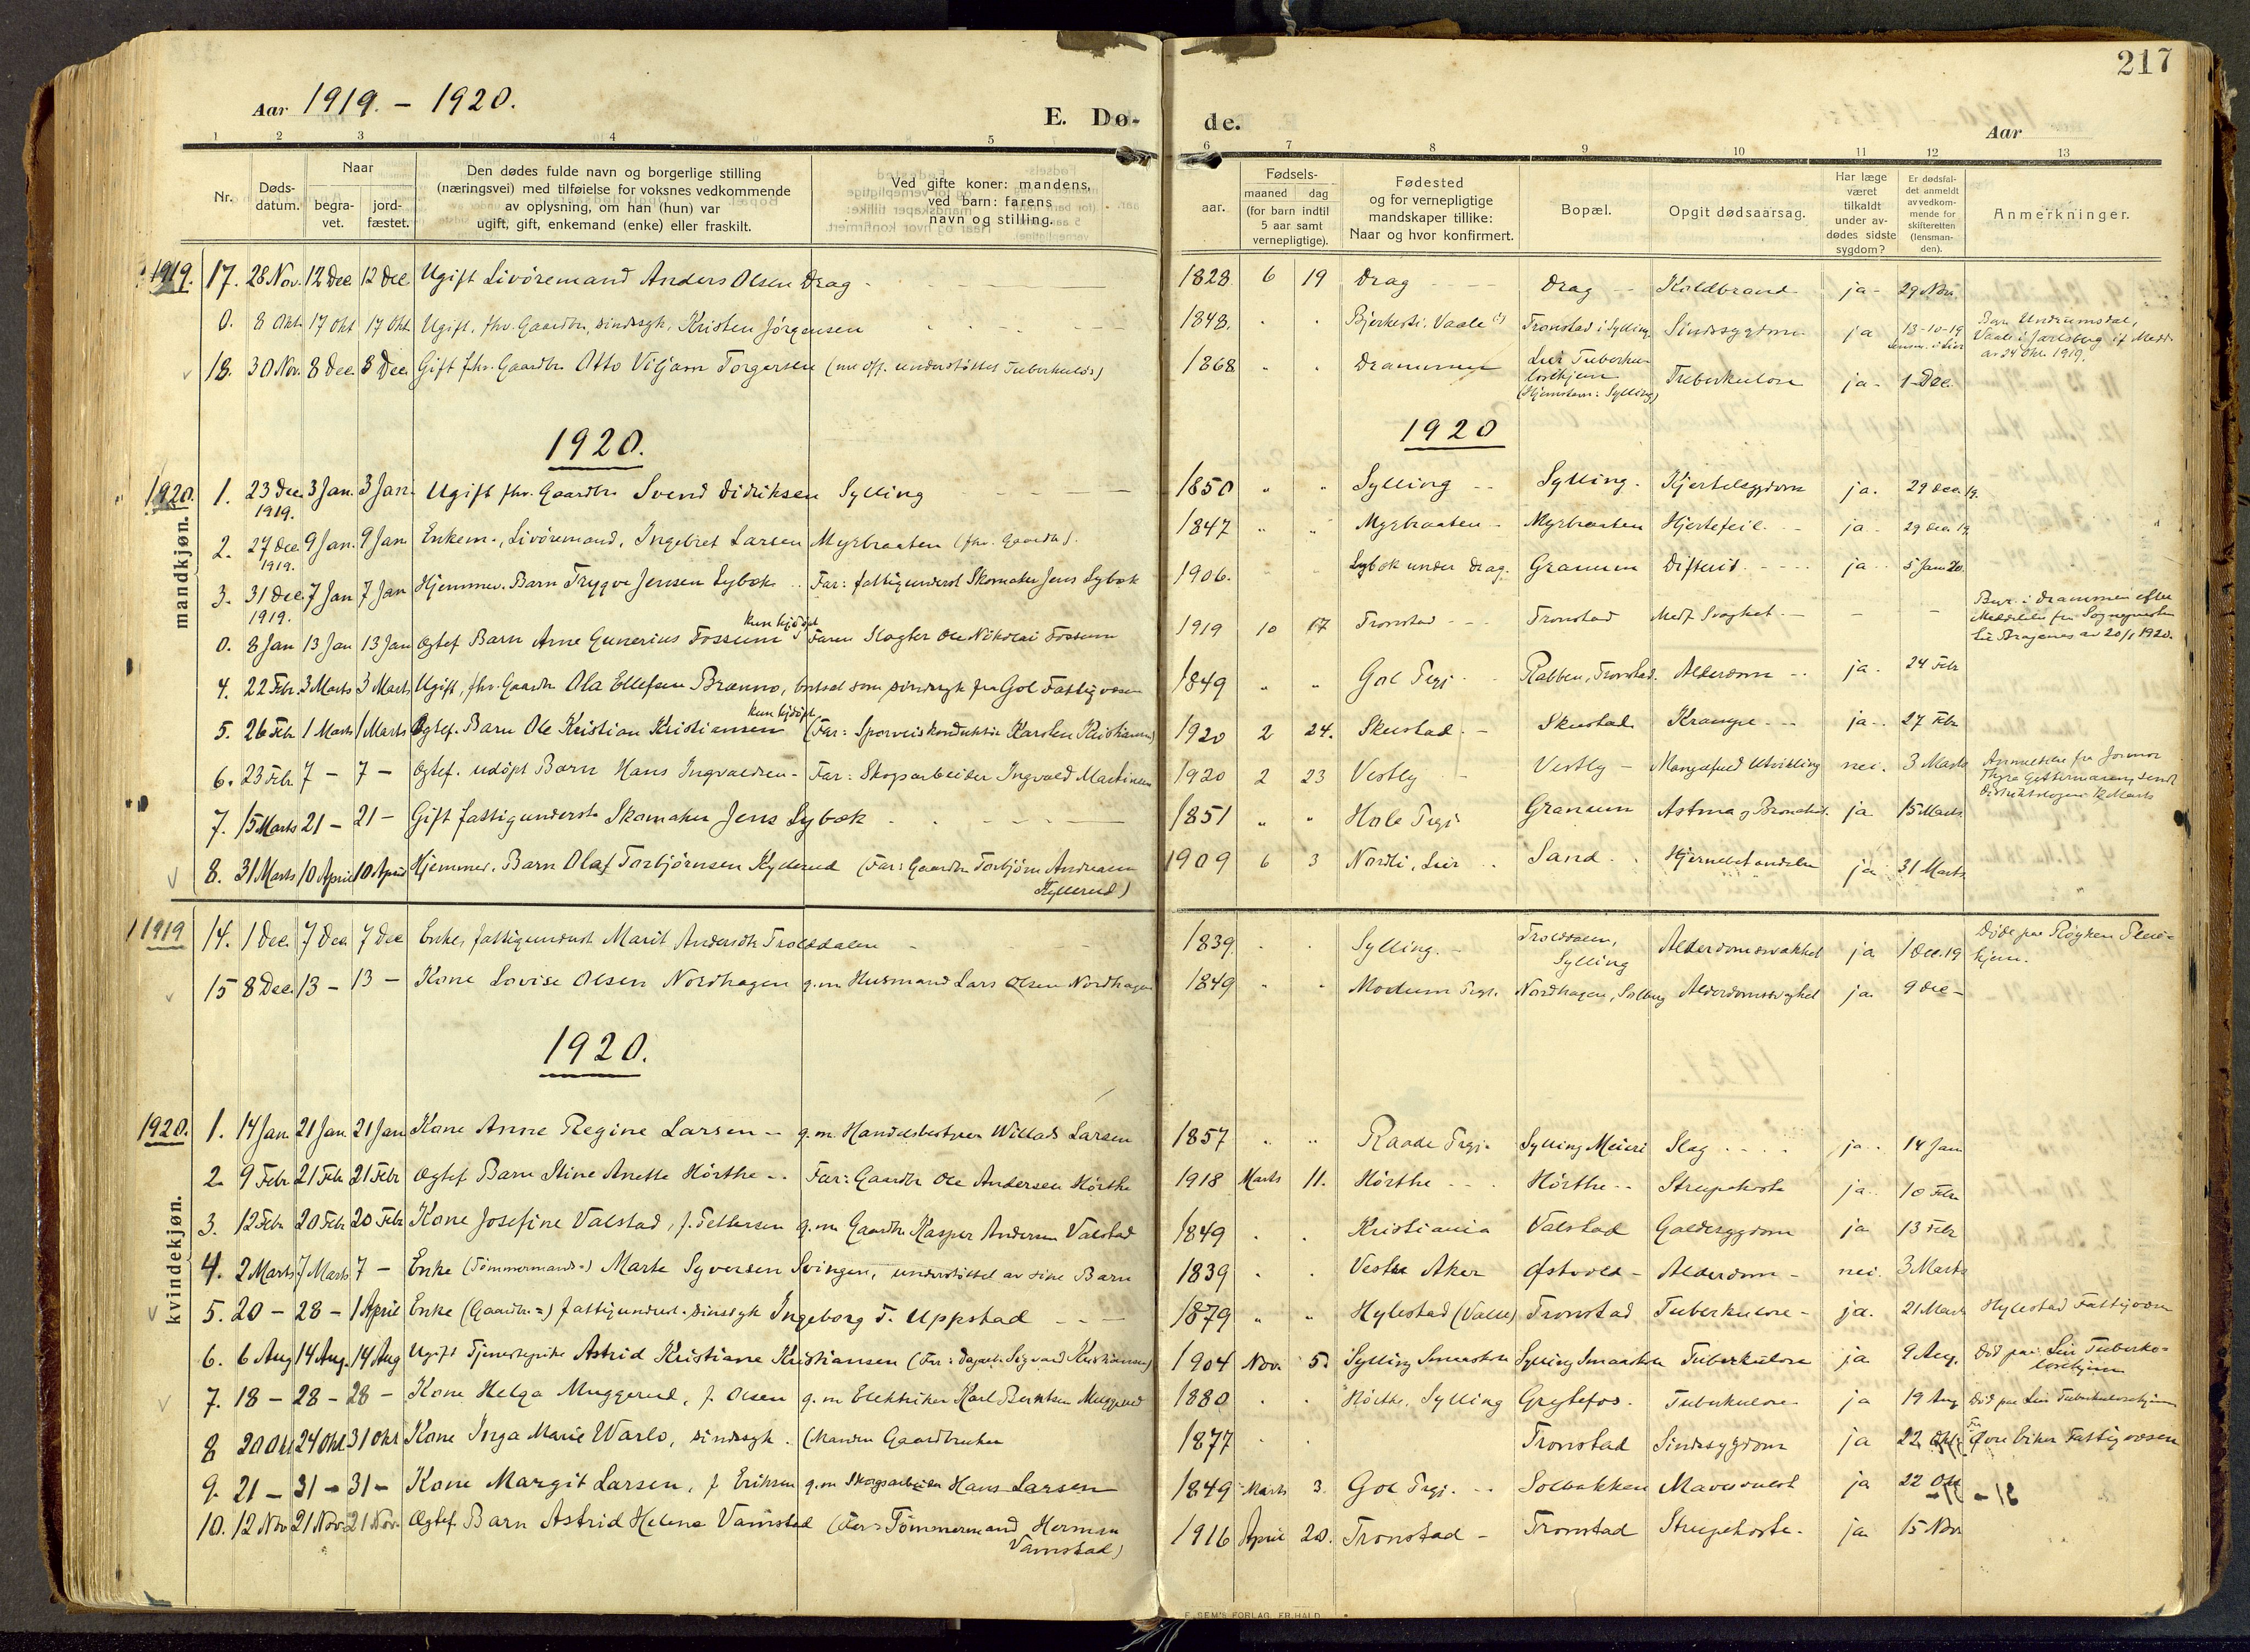 217
Aar 1919. - 1920.
E. Dø-
de.
Aar
1 2 3 4 5
6 7 8 9 10 11 12 13
Nr.
Døds-
datum.
Naar
begra-
vet.
jord-
fæstet.
Den dødes fulde navn og borgerlige stilling
(næringsvei) med tilføielse for voksnes vedkommende
av oplysning, om han (hun) var
ugift, gift, enkemand (enke) eller fraskilt.
Ved gifte koner: mandens,
ved barn: farens
navn og stilling.
Fødsels-
aar.
maaned
dag
(for barn indtil
5 aar samt
vernepligtige).
Fødested
og for vernepligtige
mandskaper tillike:
Naar og hvor konfirmert.
Bopæl.
Opgit dødsaarsag.
Har læge
været
tilkaldt
under av-
dødes sidste
sygdom?
Er dødsfal-
det anmeldt
av vedkom-
mende for
skifteretten
(lensman-
den).
Anmerkninger.
1919. 17. 28 Nov. 12 Dec. 12 Dec. Ugift Livøremand Anders Olsen Drag 1828 6 19 Drag Drag Koldbrand ja 29 Nov.
0. 8 Okt 17 Okt 17 Okt Ugift, fhv. Gaardbr. sindssyk, Kristen Jørgensen 1848. Vaale Tronstad i Sylling Sindssygdom ja 13-10-19
Lensm. i Lier
Vaale i Jarlsberg
av 24 Okt. 1919.
18. 30 Nov. 8 Dec. 8 Dec. Gift fhv. Gaardbr. Otto Viljam Torgersen (nu off. understøttet Tuberkuløs) 1868 Drammen Lier Tuberku-
losehjem
(Hjemstavn: Sylling)
Tuberkulose ja 1 Dec.
1920.
1920
1920.
mandkjøn.
1. 23 Dec. 1919. 3 Jan. 3 Jan. Ugift fhv. Gaardbr. Svend Didriksen Sylling 1850 " " Sylling Sylling. Kjertelsygdom ja. 29 Dec. 19.
2. 27 Dec. 1919. 9 Jan. 9 Jan Enkem., Livøremand, Ingebret Larsen Myrbraaten (fhv. Gaardbr). 1847 " " Myrbraaten Myrbraaten Hjertefeil ja 29 Dec. 19.
3. 31 Dec. 1919. 7 Jan 7 Jan Hjemmev. Barn Trygve Jensen Lybæk Far: fattigunderst Skomaker Jens Lybæk 1906. Lybæk under Drag. Granum Difterit ja 5 Jan 20.
0. 8 Jan 13 Jan 13 Jan Ægtef Barn Arne Gunerius Fossum kun hjdøpt Faren Slagter Ole Nikolai Fossum 1919 10 17 Tronstad Tronstad Medf. Svaghet - - Drammen efter
Meddelelse fra Sognepresten
av 20/1 1920.
4. 22 Febr. 3 Marts 3 Marts Ugift, fhv. Gaardbr Ola Ellefsen Brenno, bortsat som sindssyk fra Gol Fattigvæsen 1849 " " Gol Prgj. Tronstad. Alderdom ja. 24 Febr
5. 26 Febr 1 Marts 1 Marts Ægtef. Barn Ole Kristian Kristiansen kun hjdøpt (Far: Sporveiskonduktør Karsten Kristiansen) 1920 2 24. Skustad Skustad Krampe ja 27 Febr
6. 23 Febr 7 - 7 - Ægtef. udøpt Barn Hans Ingvaldsen - Far: Skogarbeider Ingvald Martinsen 1920 2 23 Vestby Vestby Mangelfuld Utvikling nei. 3 Marts Anmeldelse fra Jormor
7. 15 Marts 21 - 21 - Gift fattigunderst. Skomaker Jens Lybæk 1851 " " Hole Prgj. Granum Astma og Bronchit. ja 15 Marts
8. 31 Marts 10 April 10 April Hjemmev. Barn Olaf Torbjørnsen Kyllerud (Far: Gaardbr Torbjørn Andreasen
Kyllerud) 1909 6 3 Nordli, Lier Sand Hjernebetændelse ja 31 Marts
1919 14. 1 Dec. 7 Dec. 7 Dec Enke, fattigunderst Marit Andersdtr Trolldalen 1839. Sylling. Trolldalen,
Sylling
Alderdomssvakhet ja 1 Dec. 19 Døde paa Røyken Pleie-
hjem.
15 8 Dec. 13 - 13 - Kone Lovise Olsen Nordhagen g.m Husmand Lars Olsen Nordhagen 1849 Modum Prgj. Nordhagen, Sylling Alderdomssvaghet ja 9 Dec -
1920.
1920.
kvindekjøn.
1. 14 Jan. 21 Jan 21 Jan Kone Anne Regine Larsen - g.m. Handelsbestyrer Willads Larsen 1857 " " Raade Prgj. Sylling Meieri Slag ja 14 Jan
2. 9 Febr 21 Febr 21 Febr Ægtef Barn Stine Anette Hørthe Far: Gaardbr Ole Andersen Hørthe 1918 Marts 11. Hørthe Hørthe Strupehoste ja 10 Febr
3. 12 Febr 20 Febr 20 Febr Kone Josefine Valstad, f. Pettersen g.m. Gaardbr. Kasper Andersen Valstad 1849 Kristiania Valstad Galdesygdom ja 13 Febr
4. 2 Marts 7 Marts 7 - Enke (Tømmermands-) Marte Syversen Svingen, understøttet av sine Barn 1839 Vestre Aker Østvold Alderdom nei. 3 Marts
5. 20 - 28 - 1 April Enke (Gaardbr.=) fattigunderst. sindssyk Ingeborg T. Uppstad 1879 " " Hylestad (Valle) Tronstad Tuberkulose ja. 21 Marts Hylestad Fattigvæsen
6. 6 Aug 14 Aug. 14 Aug Ugift Tjenestepike Astrid Kristiane Kristiansen (Far: Sigvard Kristiansen) 1904 Nov. 5. Sylling Sylling Tuberkulose ja 9 Aug. Død paa Lier Tuberku-
losehjem
7. 18 - 28 - 28 - Kone Helga Muggerud, f. Olsen g.m Elektriker Karl Berntsen Muggerud 1880 Hørthe, Sylling Grytefos. Tuberkulose ja 19 Aug Død paa Lier Tuberkulosehjem
8 20 Okt 24 Okt 31 Okt Kone Inga Marie Warlo, sindssyk. (Manden Gaardbruker 1877 Tronstad Sindssygdom ja 22 Okt Fattigvæsen
9. 21 - 31 - 31 - Kone Margit Larsen, f Eriksen g.m Skogsarbeider Hans Larsen 1849 Marts 3. Gol Prgj. Solbakken Mavesvulst ja 22 Okt
10. 12 Nov 21 Nov. 21 Nov. Ægtef Barn Astrid Helene Vamstad (Far: Tømmermand Herman
Vamstad) 1916 April 20. Tronstad Tronstad Strupehoste. ja 15 Nov
E. SEM'S FORLAG, FR.HALD